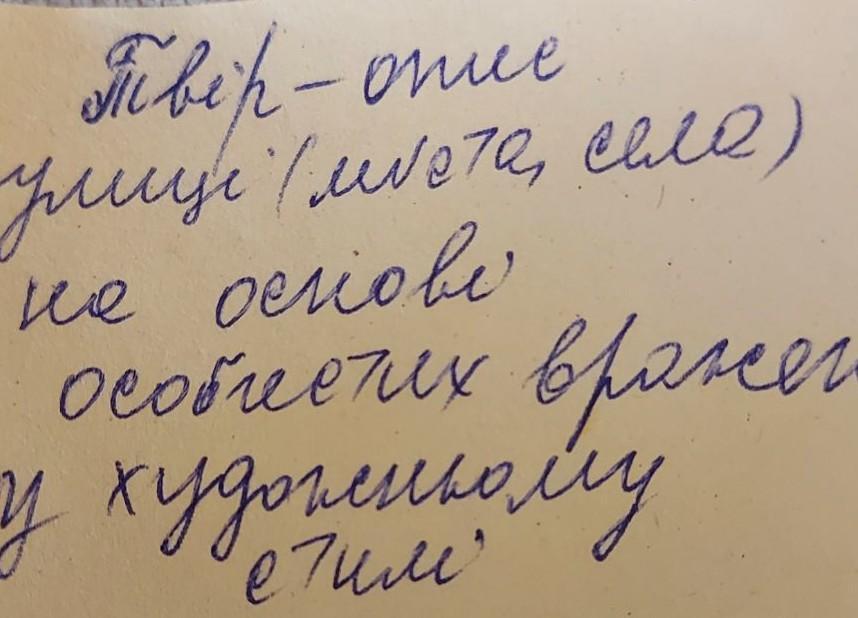 Твір – опис
улиці (міста, села)
на основі
особистих вражен
у художньому
стилі